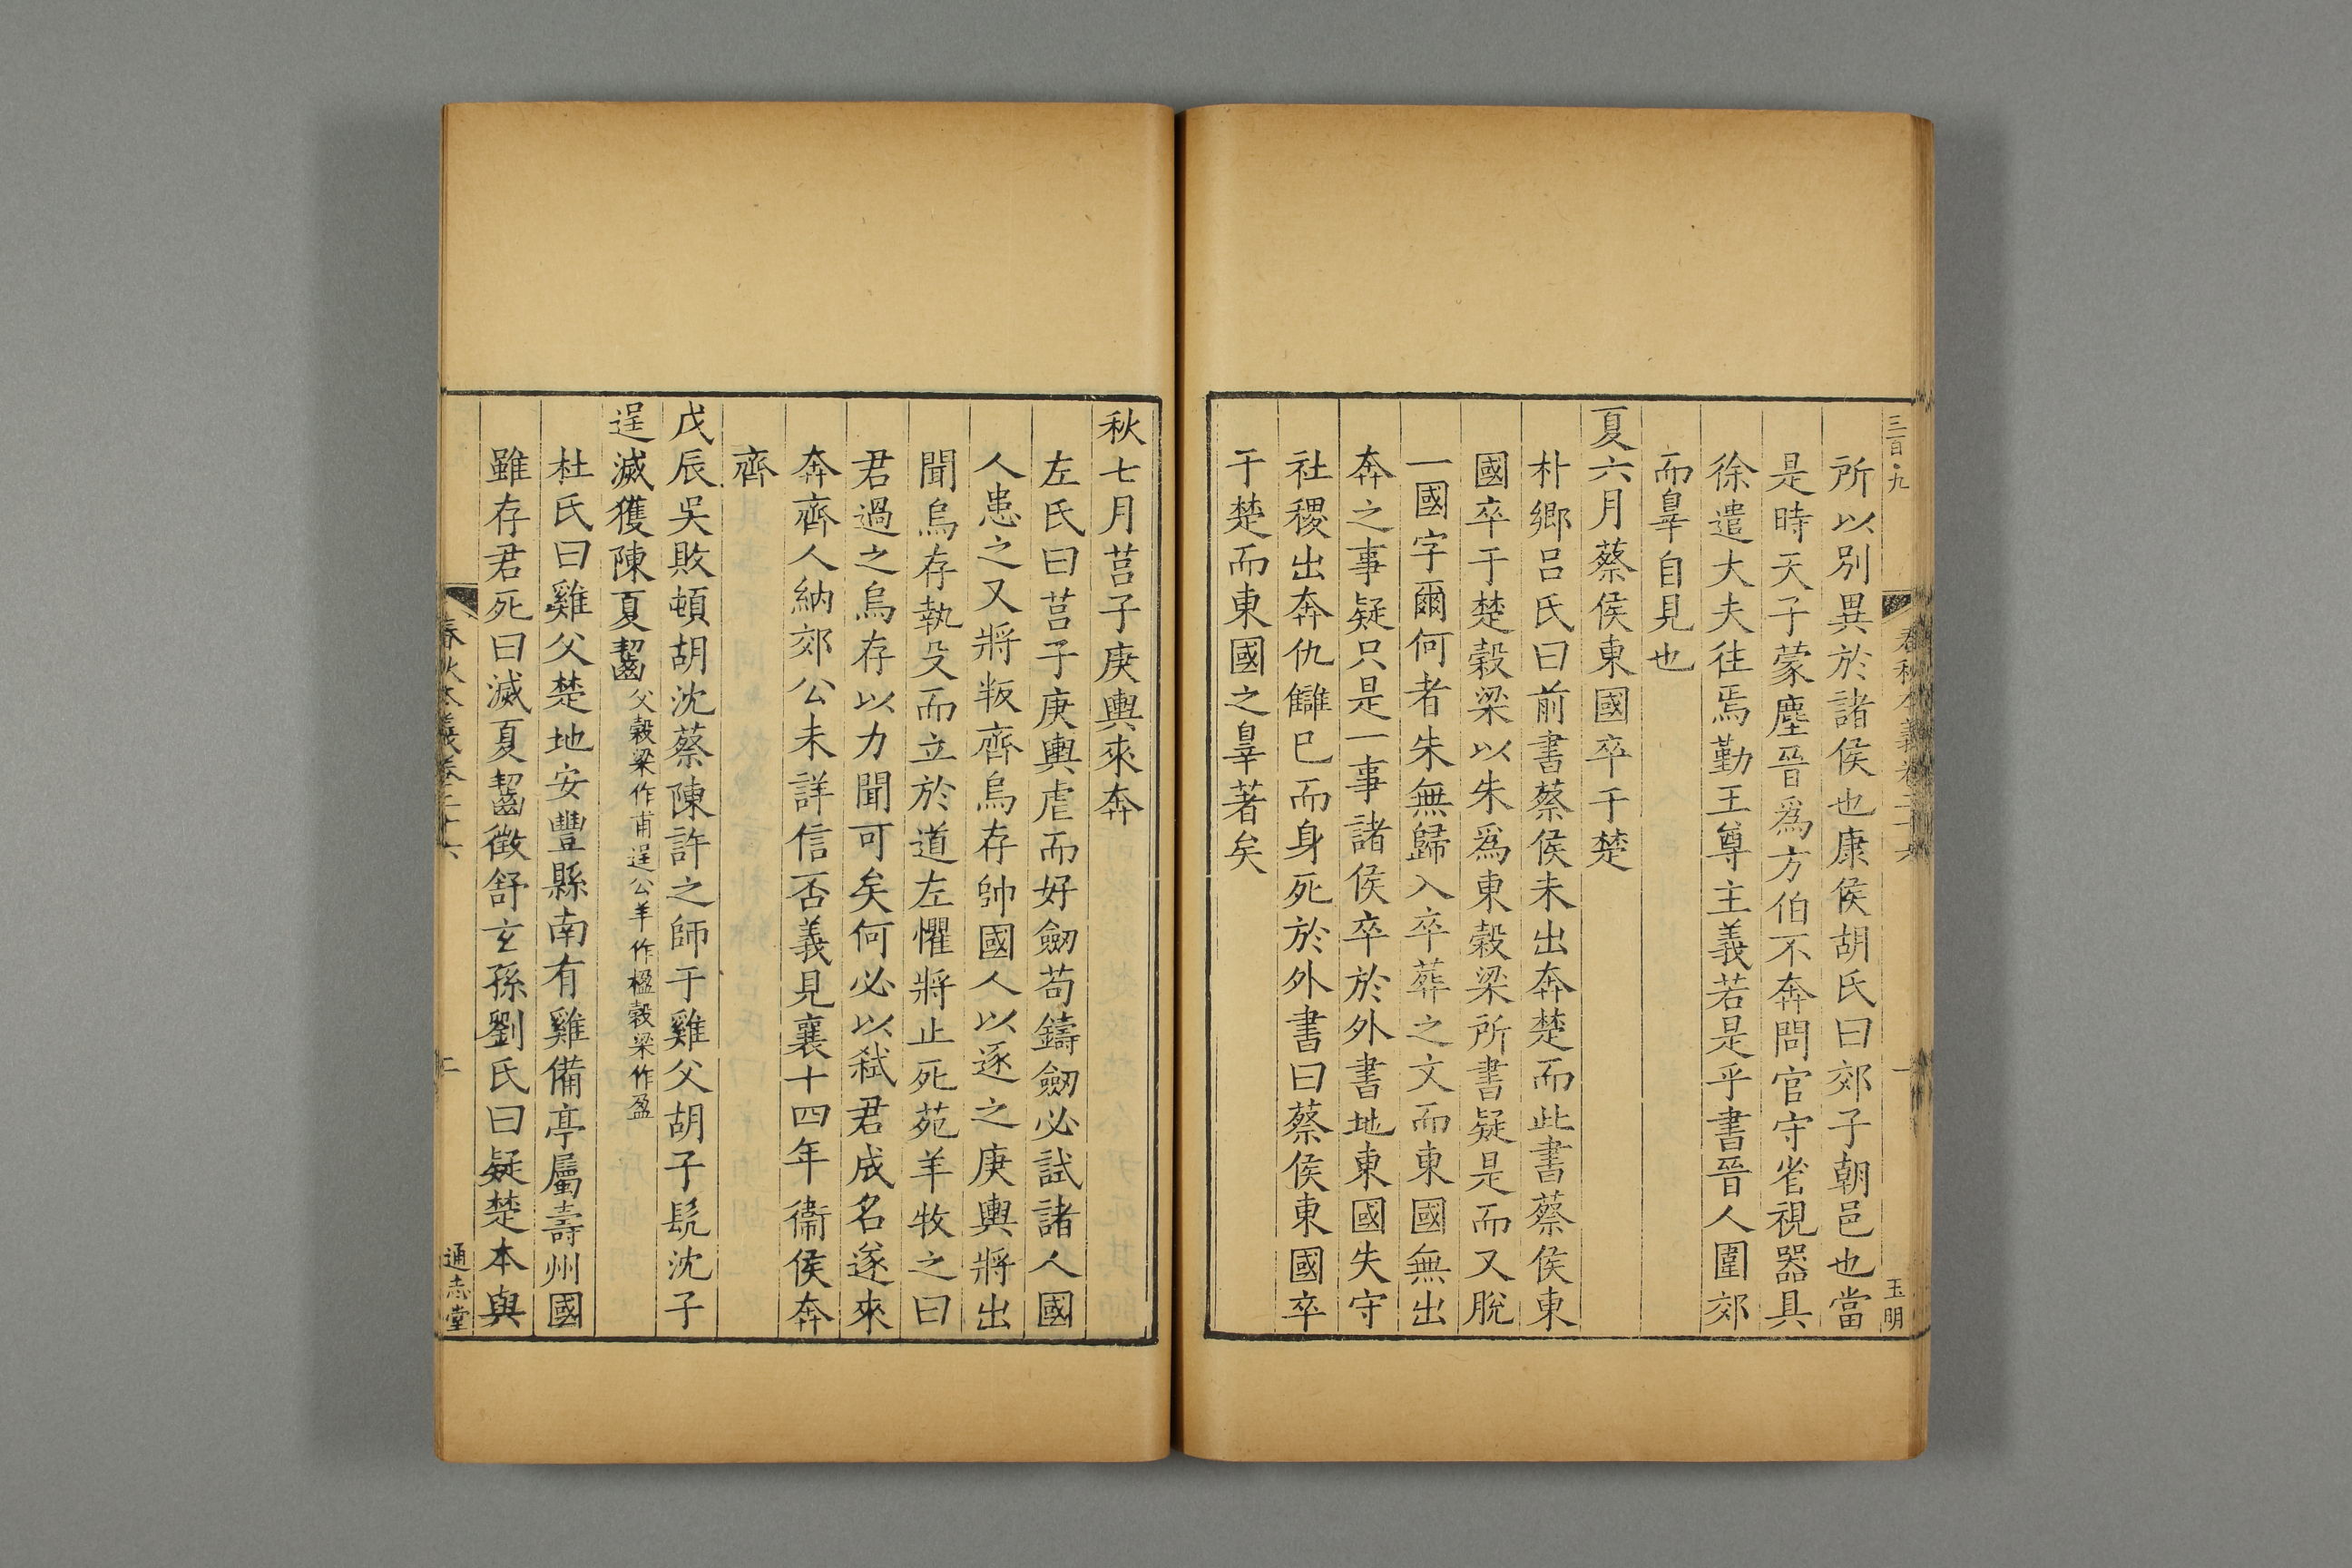 三百九
春秋本義卷二十六
一
玉明
所以別異於諸侯也康侯胡氏曰郊子朝邑也當
是時天子蒙塵晉爲方伯不奔問官守省視器具
徐遣大夫往焉勤王尊主義若是乎書晉人圍郊
而辠自見也
夏六月蔡侯東國卒于楚
朴鄉呂氏曰前書蔡侯朱出奔楚而此書蔡侯東
國卒于楚穀梁以朱爲東穀梁所書疑是而又脫
一國字爾何者朱無歸入卒葬之文而東國無出
奔之事疑只是一事諸侯卒於外書地東國失守
社稷出奔仇讎巳而身死於外書曰蔡侯東國卒
于楚而東國之辠著矣
秋七月莒子庚輿來奔
左氏曰莒子庚輿虐而好劒苟鑄劒必試諸人國
人患之又將叛齊烏存帥國人以逐之庚輿將出
聞烏存執殳而立於道左懼將止死苑羊牧之曰
君過之烏存以力聞可矣何必以弑君成名遂來
奔齊人納郊公未詳信否義見襄十四年衞侯奔
齊
戊辰吳敗頓胡沈蔡陳許之師于雞父胡子髡沈子
逞滅獲陳夏齧父穀梁作甫逞公羊作楹穀梁作盈
杜氏曰雞父楚地安豐縣南有雞備亭屬壽州國
雖存君死曰滅夏齧徵舒玄孫劉氏曰疑楚本與
春秋本義卷二十六
二
通志堂